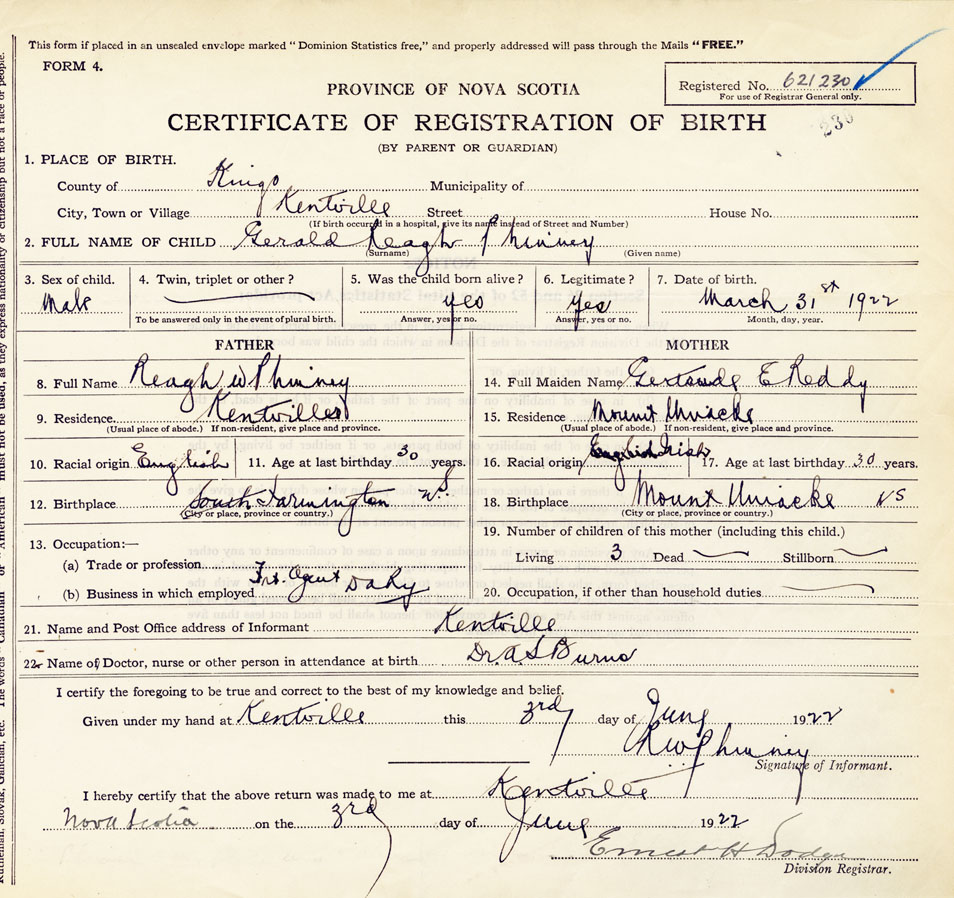 This form if placed in an unsealed envelope marked "Dominion Statistics free," and properly addressed will pass through the Mails "FREE."
FORM 4.
Registered No. 621230
For use of Registrar General only.
230
PROVINCE OF NOVA SCOTIA
CERTIFICATE OF REGISTRATION OF BIRTH
(BY PARENT OR GUARDIAN)
1. PLACE OF BIRTH.
County of Kings Municipality of
City, Town or Village Kentville Street House No.
(If birth occurred in a hospital, give its name instead of Street and Number)
2. FULL NAME OF CHILD Gerald Reagh Phinney
(Surname) (Given name)
3. Sex of child. 4. Twin, triplet or other? 5. Was the child born alive? 6. Legitimate? 7. Date of birth.
Male yes Yes March 31st 1922
To be answered only in the event of plural birth. Answer, yes or no. Answer, yes or no. Month, day, year.
FATHER MOTHER
8. Full Name Reagh W Phinney 14. Full Maiden Name Gertrude E Reddy
9. Residence Kentville 15. Residence Mount Uniacke
(Usual place of abode.) If non-resident, give place and province. (Usual place of abode.) If non-resident, give place and province.
10. Racial origin English 11. Age at last birthday 30 years. 16. Racial origin Irish 17. Age at last birthday 30 years.
12. Birthplace South Farmington N.S. 18. Birthplace Mount Uniacke NS
(City or place, province or country.) (City or place, province or country.)
13. Occupation:— 19. Number of children of this mother (including this child.)
(a) Trade or profession Living 3 Dead Stillborn
(b) Business in which employed Frt. Agent DARy 20. Occupation, if other than household duties
21. Name and Post Office address of Informant Kentville
22. Name of Doctor, nurse or other person in attendance at birth Dr. A S Burns
I certify the foregoing to be true and correct to the best of my knowledge and belief.
Given under my hand at Kentville this 3rd day of June 1922
R W Phinney
Signature of Informant.
I hereby certify that the above return was made to me at Kentville
Nova Scotia on the 3rd day of June 1922
Ernest H Dodge
Division Registrar.